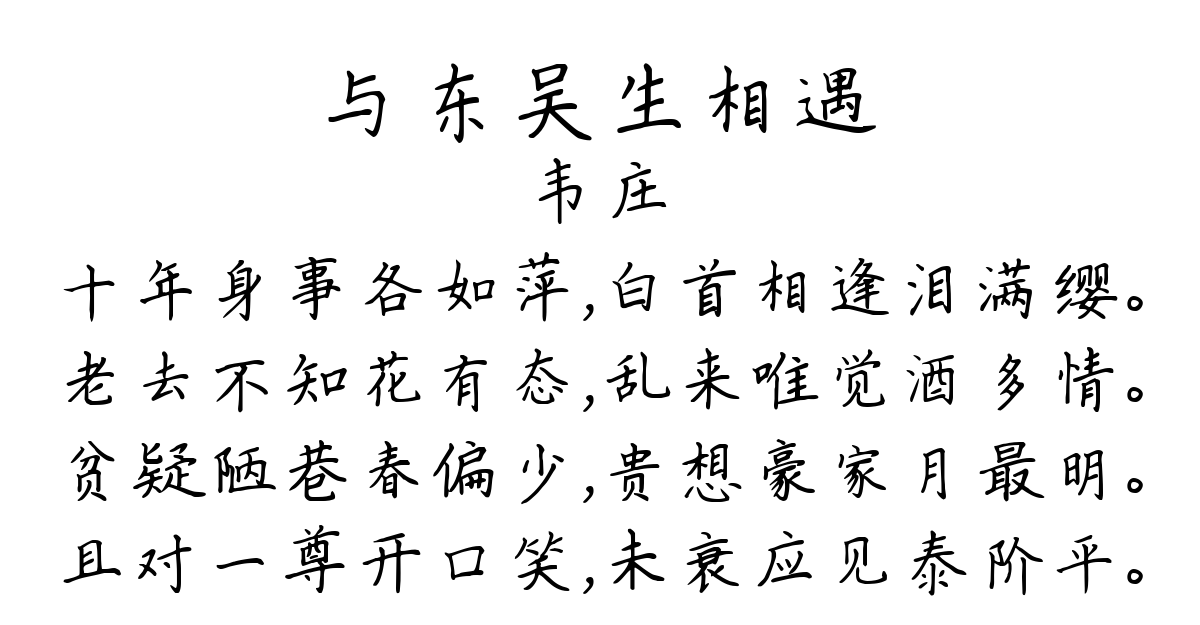 与东吴生相遇
韦庄
十年身事各如萍,白首相逢泪满缨。
老去不知花有态,乱来唯觉酒多情。
贫疑陋巷春偏少,贵想豪家月最明。
且对一尊开口笑,未衰应见泰阶平。